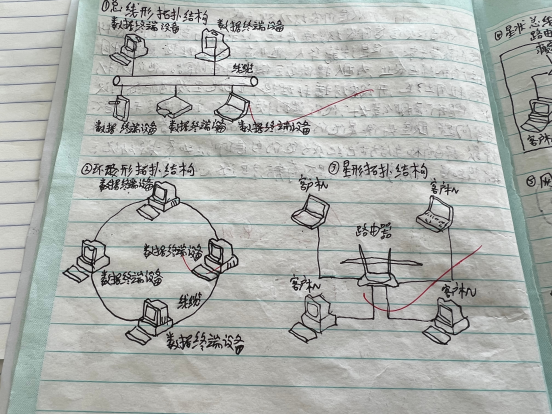 ①总线形拓扑结构
数据终端设备 数据终端设备
线缆
数据终端设备 数据终端设备 数据终端设备
②环形拓扑结构 ③星形拓扑结构
数据终端设备 客户机 客户机
路由器
数据终端设备
数据终端设备
客户机 客户机
线缆
数据终端设备
路由
客户